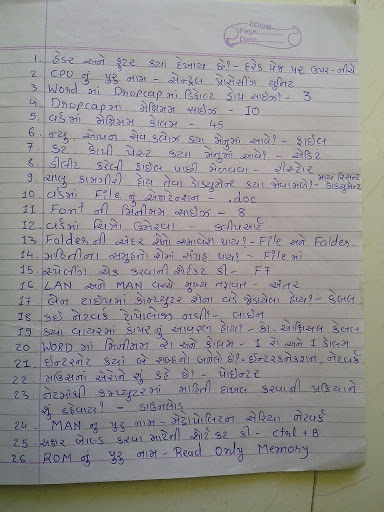 ZOOM
Page
Date
1. હેડર અને ફુટર ક્યાં દેખાય છે? - દરેક પેજ પર ઉપર-નીચે
2. CPU નું પુરૂ નામ - સેન્ટ્રલ પ્રોસેસીંગ યુનિટ
3. Word માં Dropcap માં ડિફોલ્ટ હોય સાઇઝ? - 3
4. Dropcap માં મેક્ષિમમ સાઇઝ - 10
5. વર્ડમાં મેક્ષિમમ કોલમ - 45
6. ન્યૂ, ઓપન સેવ કલોઝ ક્યા મેનુમાં આવે? - ફાઇલ
7. કટ કોપી પેસ્ટ કયા મેનુમાં આવે? - એડિટ
8. ડીલીટ કરેલી ફાઇલ પાછી મેળવવા - રીસ્ટોર
9. ચાલુ કામગીરી હોય તેવા ડોક્યુમેન્ટ ક્યા જોવામળે? - માય રિસન્ટ ડોક્યુમેન્ટ
10. વર્ડમાં File નું એક્સટેન્શન - .doc
11. Font ની મિનીમમ સાઇઝ - 8
12. વર્ડમાં ચિત્રો ઉમેરવા - કલીપઆર્ટ
13. Folder ની અંદર શેનો સમાવેશ થાય? - File અને Folder.
14. માહિતીના સમુહનો શેમાં સંગ્રહ થાય? - File માં
15. સ્પેલીંગ ચેક કરવાની શોર્ટકટ કી - F7
16. LAN અને MAN વચ્ચે મુખ્ય તફાવત - અંતર
17. લેન ટાઇપમાં કોમ્પ્યુટર શેના વડે જોડાયેલા હોય? - કેબલ
18. કઇ નેટવર્ક ટોપોલોજી નથી? - લાઇન
19. ક્યા વાયરમાં કોપરનું આવરણ હોય? - કો-એક્ષિઅલ કેબલ
20. WORD માં મિનીમમ રો અને કોલમ - 1 રો અને 1 કોલમ
21. ઇન્ટરનેટ ક્યાં બે શબ્દનો બનેલો છે? - ઇન્ટરકનેકશન, નેટવર્ક
22. માઉસના એરોને શું કહે છે? - પોઇન્ટર
23. નેટમાંથી કમ્પ્યુટરમાં માહિતી દાખલ કરવાની પ્રક્રિયાને
શું કહેવાય? - ડાઉનલોડ
24. MAN નું પુરૂ નામ - મેટ્રોપોલિટન એરિયા નેટવર્ક
25. અક્ષર બોલ્ડ કરવા માટેની શોર્ટકટ કી - Ctrl + B
26. ROM નું પુરૂ નામ - Read Only Memory